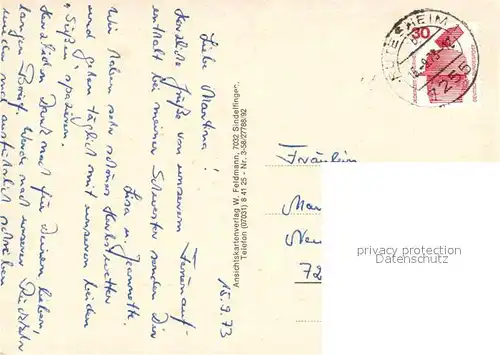 15.9.73
Liebe Martina!
Herzliche Grüße von unserem Ferienauf-
enthalt bei meiner Schwester senden Dir
Lisa u. Jeannette.
Wir haben sehr schönes Herbstwetter
und gehen täglich mit unseren beiden
"Süßen" spazieren.
Herzlichen Dank noch für Deinen lieben,
langen Brief. Werde nach unserer Rückkehr
mal ausführlich schreiben
Ansichtskartenverlag W. Feldmann, 7032 Sindelfingen,
Telefon (07031) 8 41 25 - Nr. 3-58/27788/92
30
7255
Fräulein
Mar
Neu
72
privacy protection
Datenschutz